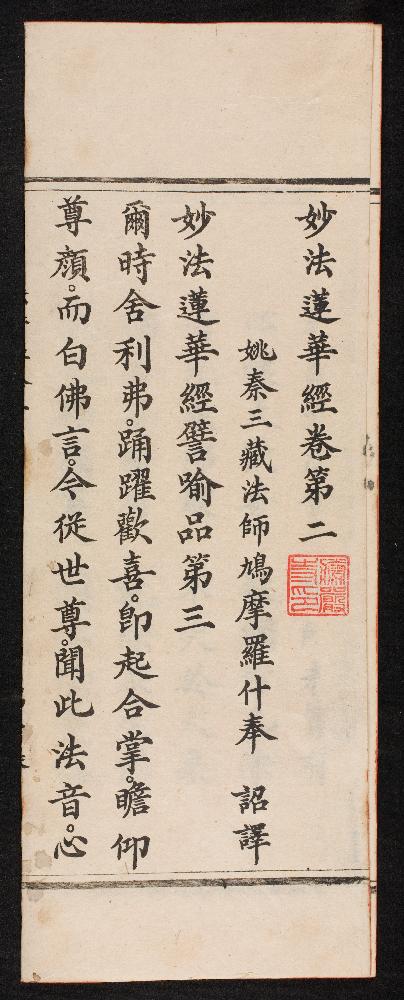 妙法蓮華經卷第二
姚秦三藏法師鳩摩羅什奉 詔譯
妙法蓮華經譬喻品第三
爾時舍利弗。踊躍歡喜。即起合掌。瞻仰
尊顏。而白佛言。今從世尊。聞此法音。心